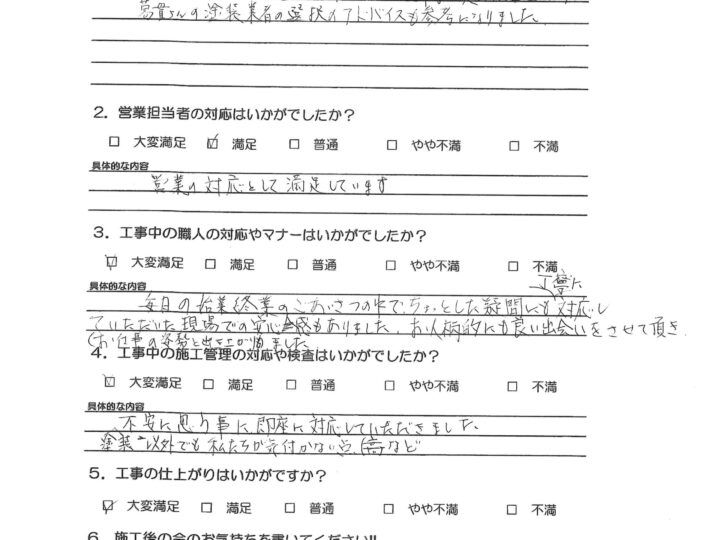 さんの塗装業者の選択のアドバイスも参考になりました。
2．営業担当者の対応はいかがでしたか？
□ 大変満足 ☑ 満足 □ 普通 □ やや不満 □ 不満
具体的な内容
営業の対応として満足しています
3．工事中の職人の対応やマナーはいかがでしたか？
☑ 大変満足 □ 満足 □ 普通 □ やや不満 □ 不満
具体的な内容
丁寧に
毎日の始業終業のごあいさつの中で、ちょっとした疑問にも対応し
ていただいた現場での安心感もありました。お人柄的にも良い出会いをさせて頂き
(お仕事の姿勢と出
ました
4．工事中の施工管理の対応や検査はいかがでしたか？
☑ 大変満足 □ 満足 □ 普通 □ やや不満 □ 不満
具体的な内容
不安に思う事に即座に対応していただきました。
塗装以外でも私たちが気付かない点 など
5．工事の仕上がりはいかがですか？
☑ 大変満足 □ 満足 □ 普通 □ やや不満 □ 不満
6．施工後の今のお気持ちを書いてください!!